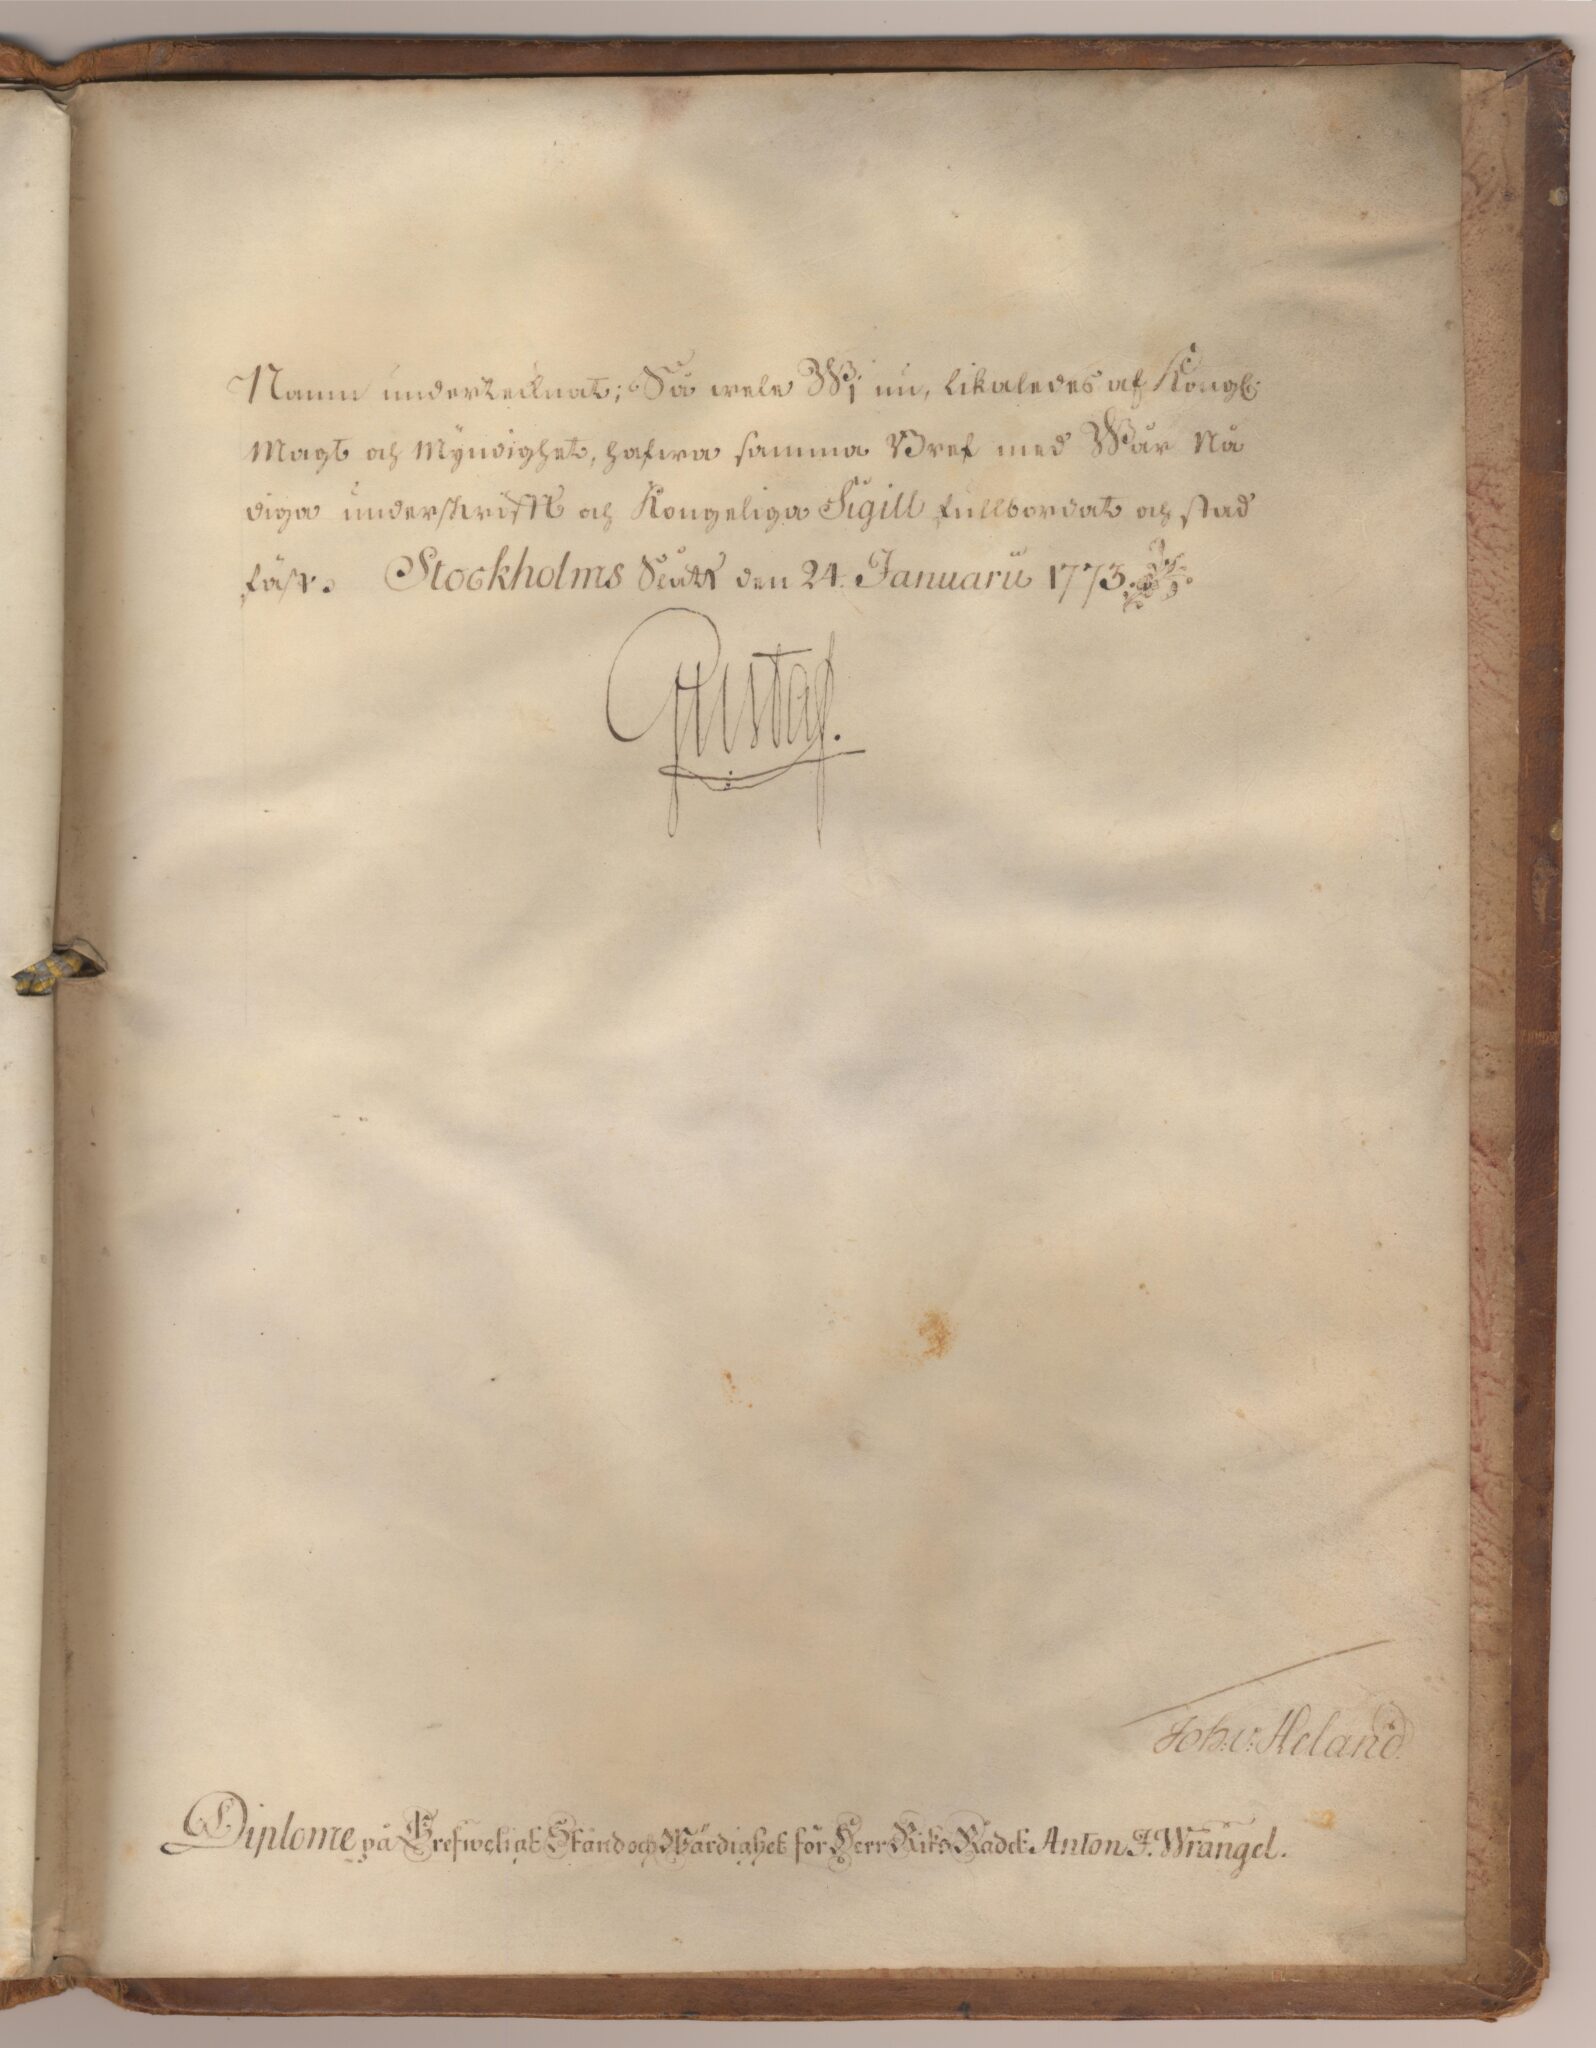 Namn undertecknat; Så wele Wi nu, likaledes af Kongl:
Magt och Myndighet, hafwa samma Bref med Wår Nå
diga underskrifft och Kongeliga Sigill fullbordat och stad
fäst. Stockholms Slott den 24. Januarii 1773.
Gustaf.
Joh: v: Heland.
Diplome på Grefweligt Stånd och Wärdighet för Herr Riks Rådet Anton J. Wrangel.